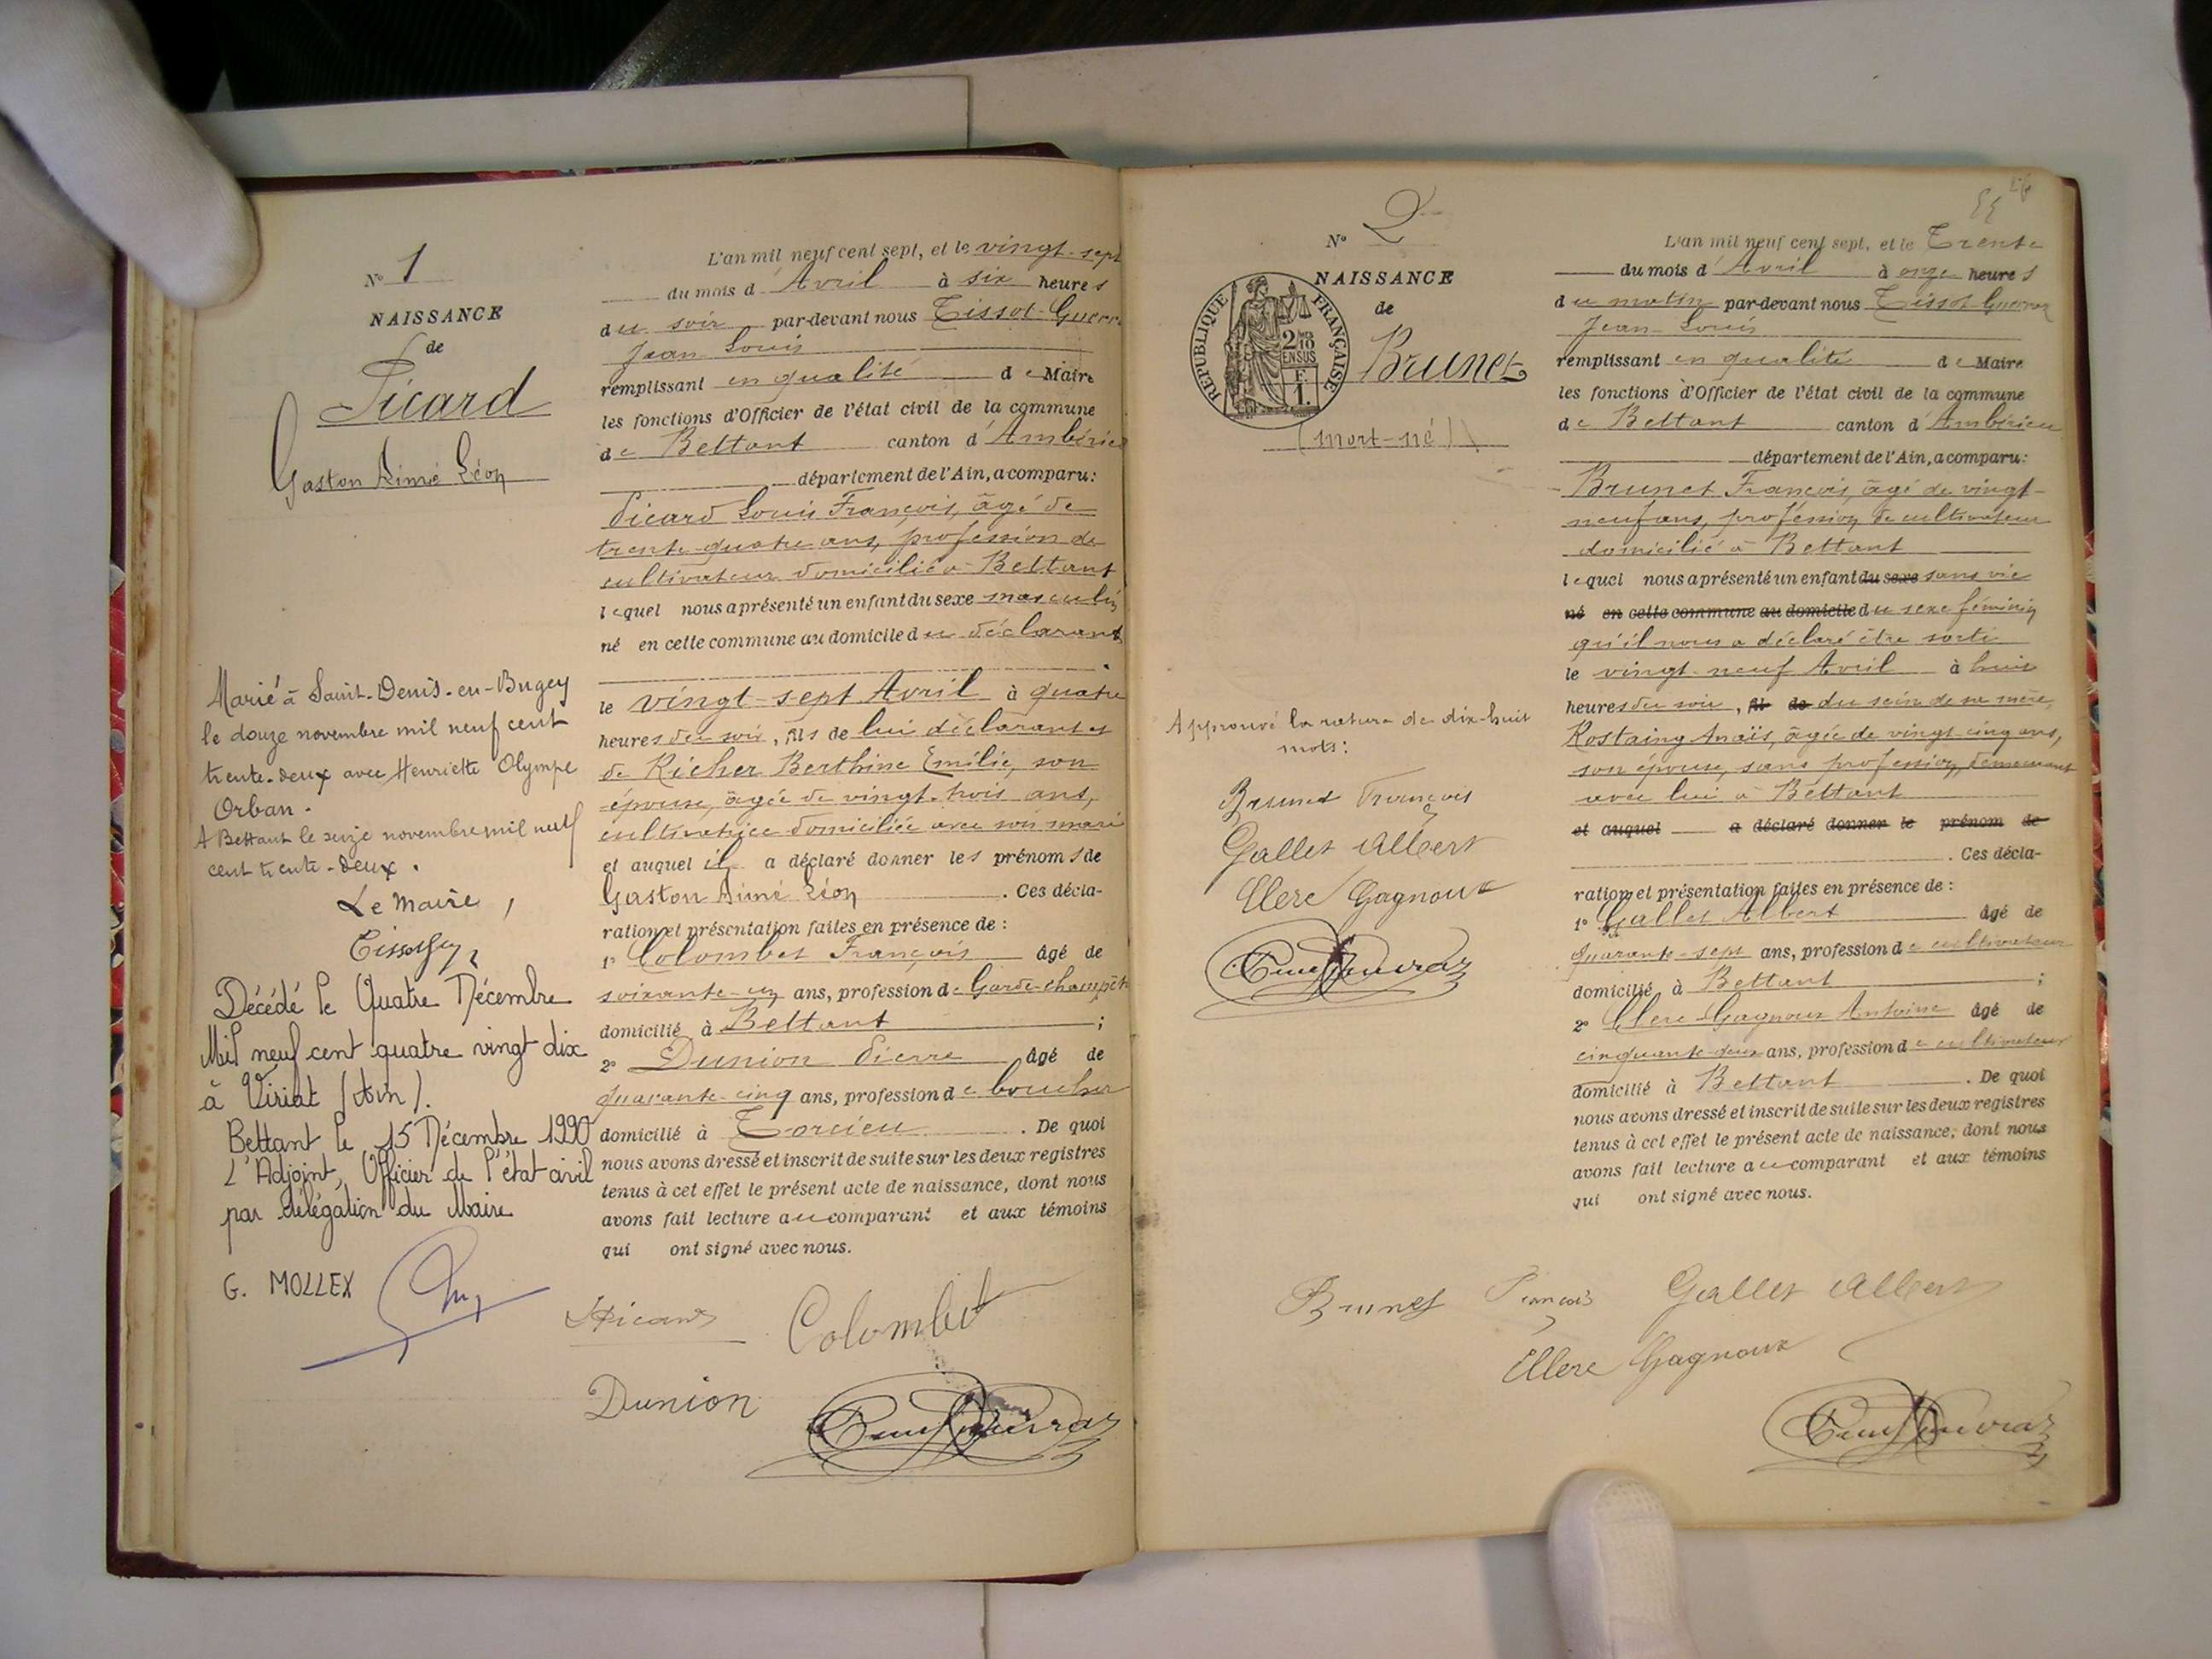 N° 1
NAISSANCE
de
Picard
Gaston Aimé Léon
Marié à Saint-Denis-en-Bugey
le douze novembre mil neuf cent
trente-deux avec Henriette Olympe
Orban.
A Bettant le seize novembre mil neuf
cent trente-deux.
Le Maire,
Décédé le Quatre Décembre
Mil neuf cent quatre vingt dix
à Viriat (Ain).
Bettant le 15 Décembre 1990
L'Adjoint, Officier de l'état civil
par délégation du Maire
G. MOLLEX
L'an mil neuf cent sept, et le vingt-sept
du mois d'Avril à six heures
du soir par-devant nous Tissot-Guerr
Jean Louis
remplissant en qualité de Maire
les fonctions d'Officier de l'état civil de la commune
de Bettant canton d'Ambérieu
département de l'Ain, a comparu:
Picard Louis François, âgé de
trente-quatre ans, profession de
cultivateur domicilié à Bettant
lequel nous a présenté un enfant du sexe masculin
né en cette commune au domicile du déclarant
le vingt-sept Avril à quatre
heures du soir, fils de lui déclarant et
de Richer Berthine Emilie, son
épouse, âgée de vingt-trois ans,
cultivatrice domiciliée avec son mari
et auquel il a déclaré donner les prénoms de
Gaston Aimé Léon. Ces décla-
ration et présentation faites en présence de :
1° Colombet François âgé de
soixante-un ans, profession de Garde-champêtr
domicilié à Bettant ;
2° Dunion Pierre âgé de
quarante-cinq ans, profession de boucher
domicilié à Torcieu. De quoi
nous avons dressé et inscrit de suite sur les deux registres
tenus à cet effet le présent acte de naissance, dont nous
avons fait lecture au comparant et aux témoins
qui ont signé avec nous.
Picard Colombet
Dunion
N° 2
NAISSANCE
de
RÉPUBLIQUE FRANÇAISE
Brunet
(mort-né)
Approuvé la rature de dix-huit
mots:
Brunet François
Gallet Albert
Clerc Gagnoux
L'an mil neuf cent sept, et le Trente
du mois d'Avril à onze heures
du matin par-devant nous Tissot Guerraz
Jean Louis
remplissant en qualité de Maire
les fonctions d'Officier de l'état civil de la commune
de Bettant canton d'Ambérieu
département de l'Ain, a comparu:
Brunet François, âgé de vingt-
neuf ans, profession de cultivateur
domicilié à Bettant
lequel nous a présenté un enfant du sexe sans vie
né en cette commune au domicile du sexe féminin
qu'il nous a déclaré être sorti
le vingt-neuf Avril à huit
heures du soir, fil de du sein de sa mère,
Rostaing Anaïs, âgée de vingt-cinq ans,
son épouse, sans profession, demeurant
avec lui à Bettant
et auquel a déclaré donner le prénom de
. Ces décla-
ration et présentation faites en présence de :
1° Gallet Albert âgé de
quarante-sept ans, profession de cultivateur
domicilié à Bettant ;
2° Clerc-Gagnoux Antoine âgé de
cinquante-deux ans, profession de cultivateur
domicilié à Bettant. De quoi
nous avons dressé et inscrit de suite sur les deux registres
tenus à cet effet le présent acte de naissance, dont nous
avons fait lecture au comparant et aux témoins
qui ont signé avec nous.
Brunet François Gallet Albert
Clerc Gagnoux